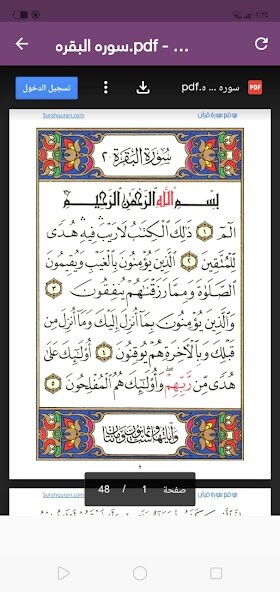 سوره البقره.pdf - ...
تسجيل الدخول
سوره ... ه.pdf
PDF
Surahquran.com
موقع سورة قرآن
سُورَةُ البَقَرَةِ ٢
بِسْمِ اللَّهِ الرَّحْمَٰنِ الرَّحِيمِ
الٓمٓ ١ ذَٰلِكَ الْكِتَٰبُ لَا رَيْبَ ۛ فِيهِ ۛ هُدًى
لِّلْمُتَّقِينَ ٢ الَّذِينَ يُؤْمِنُونَ بِالْغَيْبِ وَيُقِيمُونَ
الصَّلَوٰةَ وَمِمَّا رَزَقْنَٰهُمْ يُنفِقُونَ ٣
وَالَّذِينَ يُؤْمِنُونَ بِمَآ أُنزِلَ إِلَيْكَ وَمَآ أُنزِلَ مِن
قَبْلِكَ وَبِالْءَاخِرَةِ هُمْ يُوقِنُونَ ٤ أُو۟لَٰٓئِكَ عَلَىٰ
هُدًى مِّن رَّبِّهِمْ ۖ وَأُو۟لَٰٓئِكَ هُمُ الْمُفْلِحُونَ ٥
صفحة 1 / 48
Surahquran.com
موقع سورة قرآن